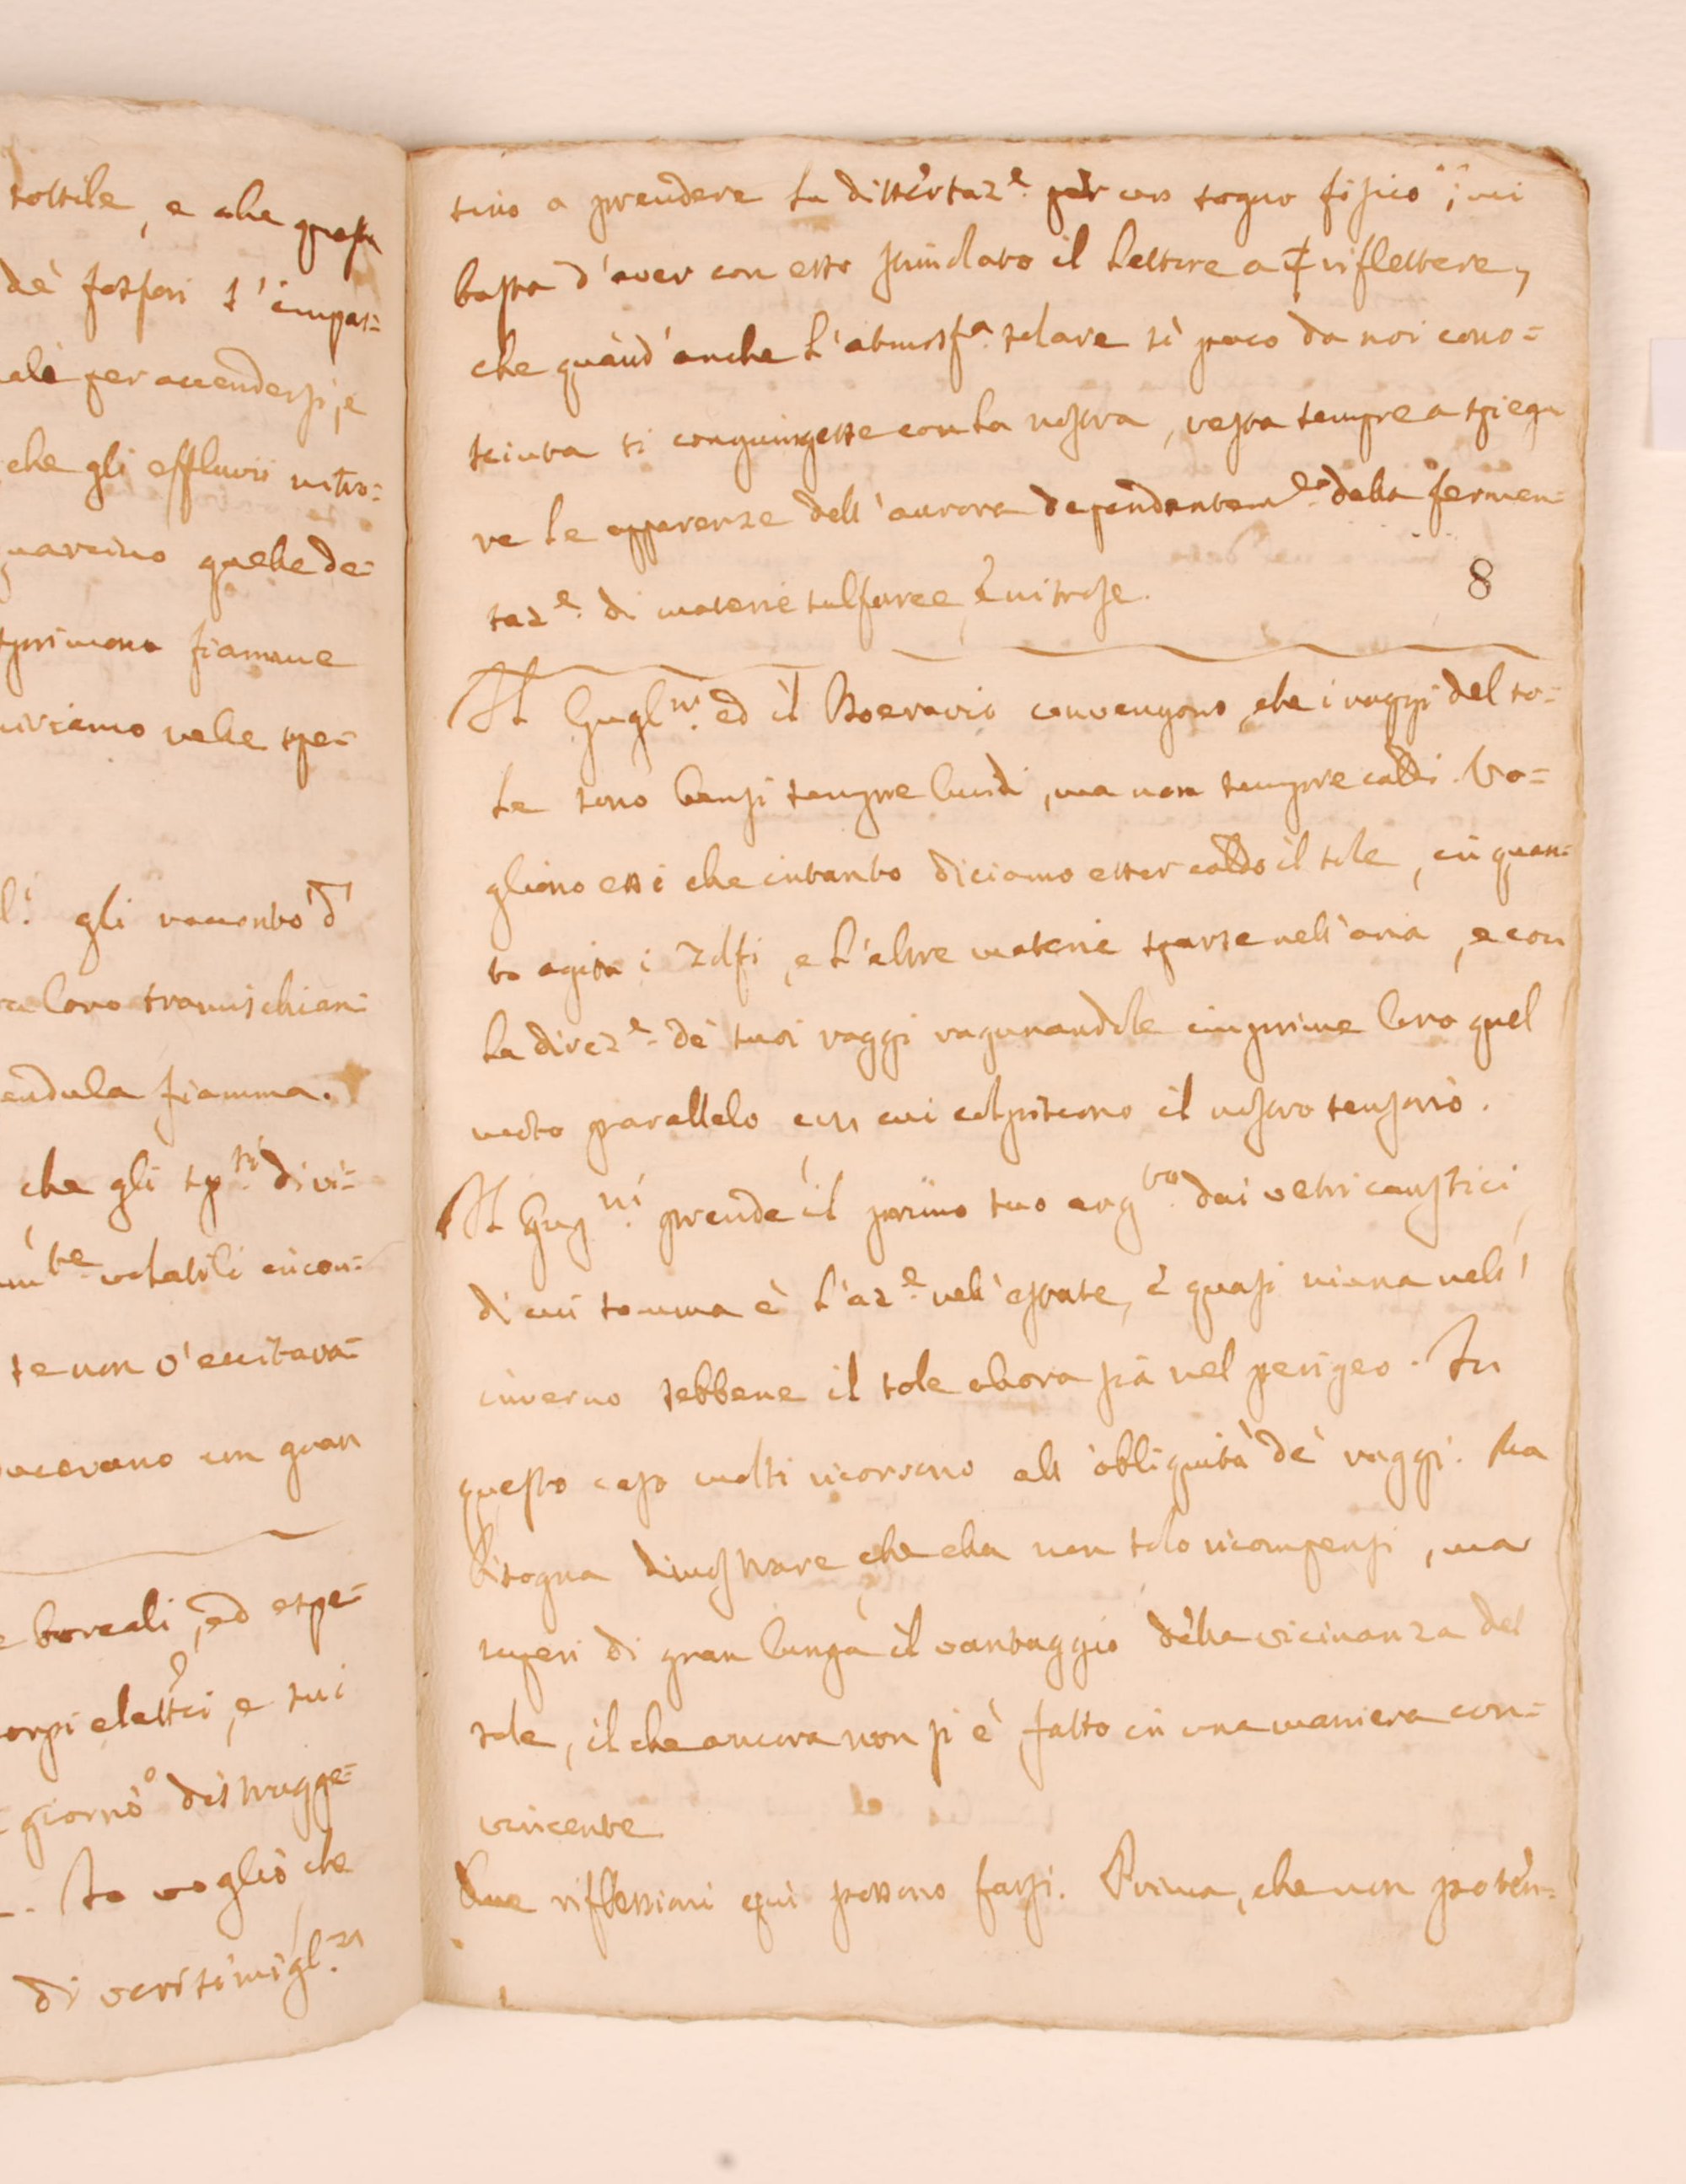 sottile, e che questa
dè fosfori s'impas=
per accendersi, e
che gli effluvii nitro=
quelle de=
sprimono fiamme
nelle spe=
gli racconto d
loro tramischian=
fiamma.
che gli sp.ri divi=
volatili incon=
se non v'eccitava=
un gran
boreali, ed espe=
elettci, e sui
giorno distrugge=
Io voglio che
di verisimigl.za
sino a prendere la dissertaz.e per un sogno fisico; mi
basta d'aver con esso stimolato il Lettore a riflettere,
che quand'anche l'atmosf.a solare sì poco da noi cono=
sciuta si congiungesse con la nostra, resta sempre a spiega
re le apparenze dell'aurora dependentem.te dalla fermen=
taz.e di materie sulfuree, e nitrose.
8
Il Gugl.ni ed il Boeravio convengono, che i raggi del so=
le sono bensi sempre lucidi, ma non sempre caldi. Vo=
gliono essi che intanto diciamo esser caldo il sole, in quan=
to agita i zolfi, e l'altre materie sparse nell'aria, e con
la direz.e dè suoi raggi ragunandole imprime loro quel
moto parallelo con cui colpiscono il nostro sensorio.
Il Gug.ni prende il primo suo arg.to dai vetri caustici,
di cui somma è l'az.e nell'estate, e quasi niuna nell'
inverno sebbene il sole allora sia nel perigeo. In
questo caso molti ricorrono all'obliquità dè raggi. Ma
bisogna dimostrare, che ella non solo ricompensi, ma
superi di gran lunga il vantaggio della vicinanza del
sole, il che ancora non si è fatto in una maniera con=
vincente
Due riflessioni qui possono farsi. Prima, che non poten=